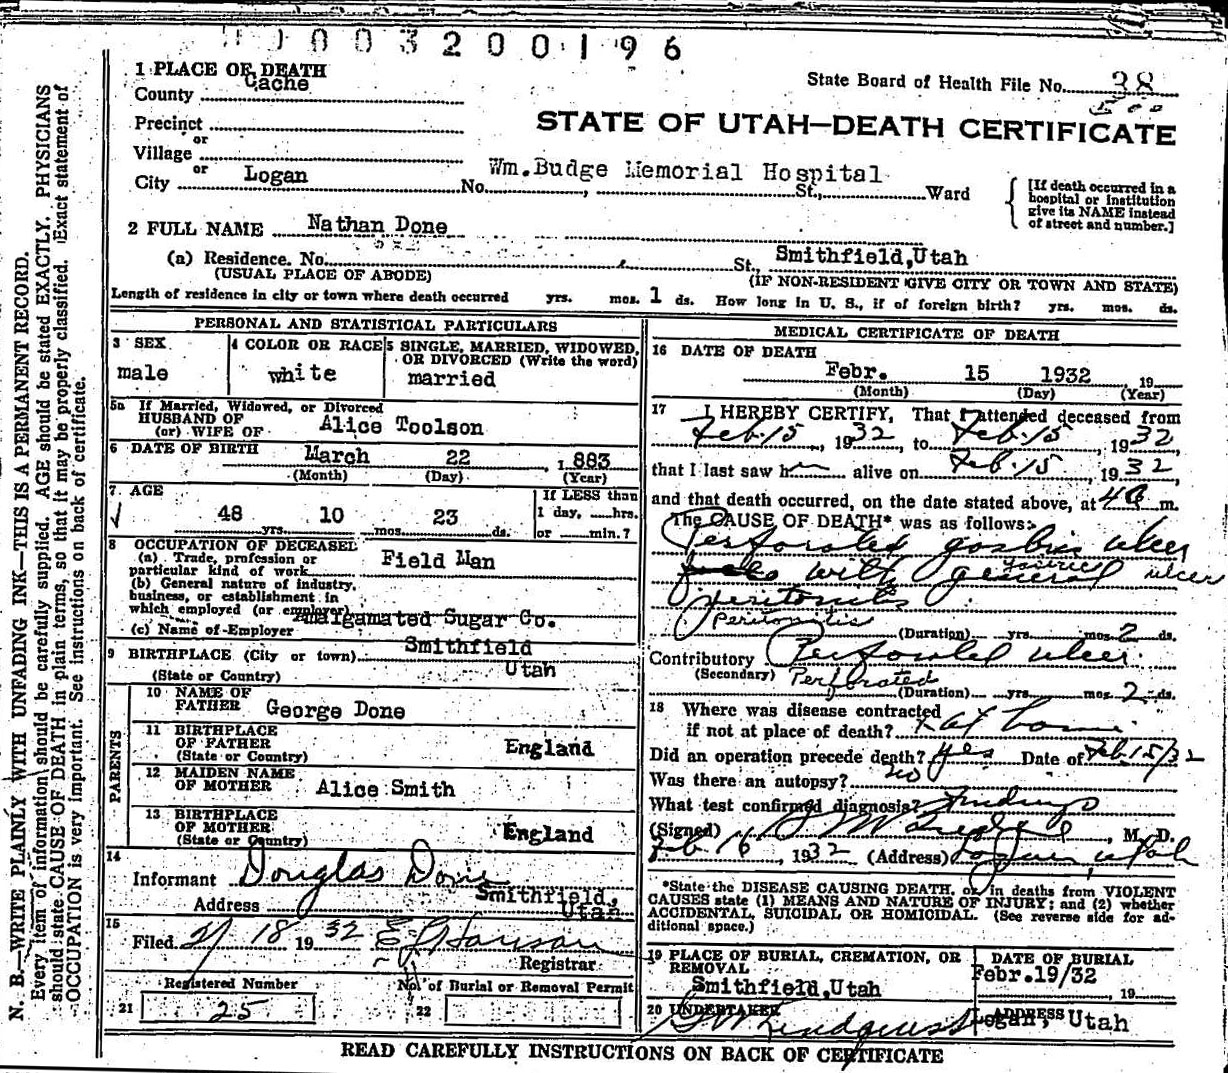 0003200196
1 PLACE OF DEATH
County Cache
State Board of Health File No. 38
500
Precinct
or
Village
or
City Logan No. Wm.Budge Memorial Hospital St., Ward
STATE OF UTAH—DEATH CERTIFICATE
[If death occurred in a
hospital or institution
give its NAME instead
of street and number.]
2 FULL NAME Nathan Done
(a) Residence. No. St., Smithfield,Utah
(USUAL PLACE OF ABODE) (IF NON-RESIDENT GIVE CITY OR TOWN AND STATE)
Length of residence in city or town where death occurred yrs. mos. 1 ds. How long in U. S., if of foreign birth? yrs. mos. ds.
PERSONAL AND STATISTICAL PARTICULARS
3 SEX
male
4 COLOR OR RACE
white
5 SINGLE, MARRIED, WIDOWED,
OR DIVORCED (Write the word)
married
5a If Married, Widowed, or Divorced
HUSBAND OF
(or) WIFE OF Alice Toolson
6 DATE OF BIRTH March 22, 1883
(Month) (Day) (Year)
7 AGE
48 yrs. 10 mos. 23 ds.
If LESS than
1 day, hrs.
or min.?
8 OCCUPATION OF DECEASED
(a) Trade, profession or
particular kind of work Field Man
(b) General nature of industry,
business, or establishment in
which employed (or employer)
Amalgamated Sugar Co.
(c) Name of Employer
9 BIRTHPLACE (City or town) Smithfield
(State or Country) Utah
PARENTS
10 NAME OF
FATHER George Done
11 BIRTHPLACE
OF FATHER England
(State or Country)
12 MAIDEN NAME
OF MOTHER Alice Smith
13 BIRTHPLACE
OF MOTHER England
(State or Country)
14
Informant Douglas Done
Address Smithfield,
Utah
15
Filed 2/18 1932 Hanson
Registrar
Registered Number
21 25
No. of Burial or Removal Permit
22
MEDICAL CERTIFICATE OF DEATH
16 DATE OF DEATH
Febr. 15 1932, 19
(Month) (Day) (Year)
17 I HEREBY CERTIFY, That I attended deceased from
Feb. 15, 1932, to Feb. 15, 1932
that I last saw h alive on Feb. 15, 1932,
and that death occurred, on the date stated above, at 4 a m.
The CAUSE OF DEATH* was as follows:
Perforated gastric ulcer
gastric ulcer
with general
peritonitis
Peritonitis
(Duration) yrs. mos. 2 ds.
Contributory Perforated ulcer
(Secondary) Perforated
(Duration) yrs. mos. 2 ds.
18 Where was disease contracted
if not at place of death? at home
Did an operation precede death? yes Date of Feb 15/32
Was there an autopsy? no
What test confirmed diagnosis? Findings
(Signed) , M. D.
Feb 16, 1932 (Address) Logan, Utah
*State the DISEASE CAUSING DEATH, or, in deaths from VIOLENT
CAUSES state (1) MEANS AND NATURE OF INJURY; and (2) whether
ACCIDENTAL, SUICIDAL OR HOMICIDAL. (See reverse side for ad-
ditional space.)
19 PLACE OF BURIAL, CREMATION, OR
REMOVAL
Smithfield,Utah
DATE OF BURIAL
Febr.19/32
, 19
20 UNDERTAKER
Lindquist
ADDRESS
Logan, Utah
READ CAREFULLY INSTRUCTIONS ON BACK OF CERTIFICATE
N. B.—WRITE PLAINLY WITH UNFADING INK—THIS IS A PERMANENT RECORD.
Every item of information should be carefully supplied. AGE should be stated EXACTLY. PHYSICIANS
should state CAUSE OF DEATH in plain terms, so that it may be properly classified. Exact statement of
OCCUPATION is very important. See instructions on back of certificate.